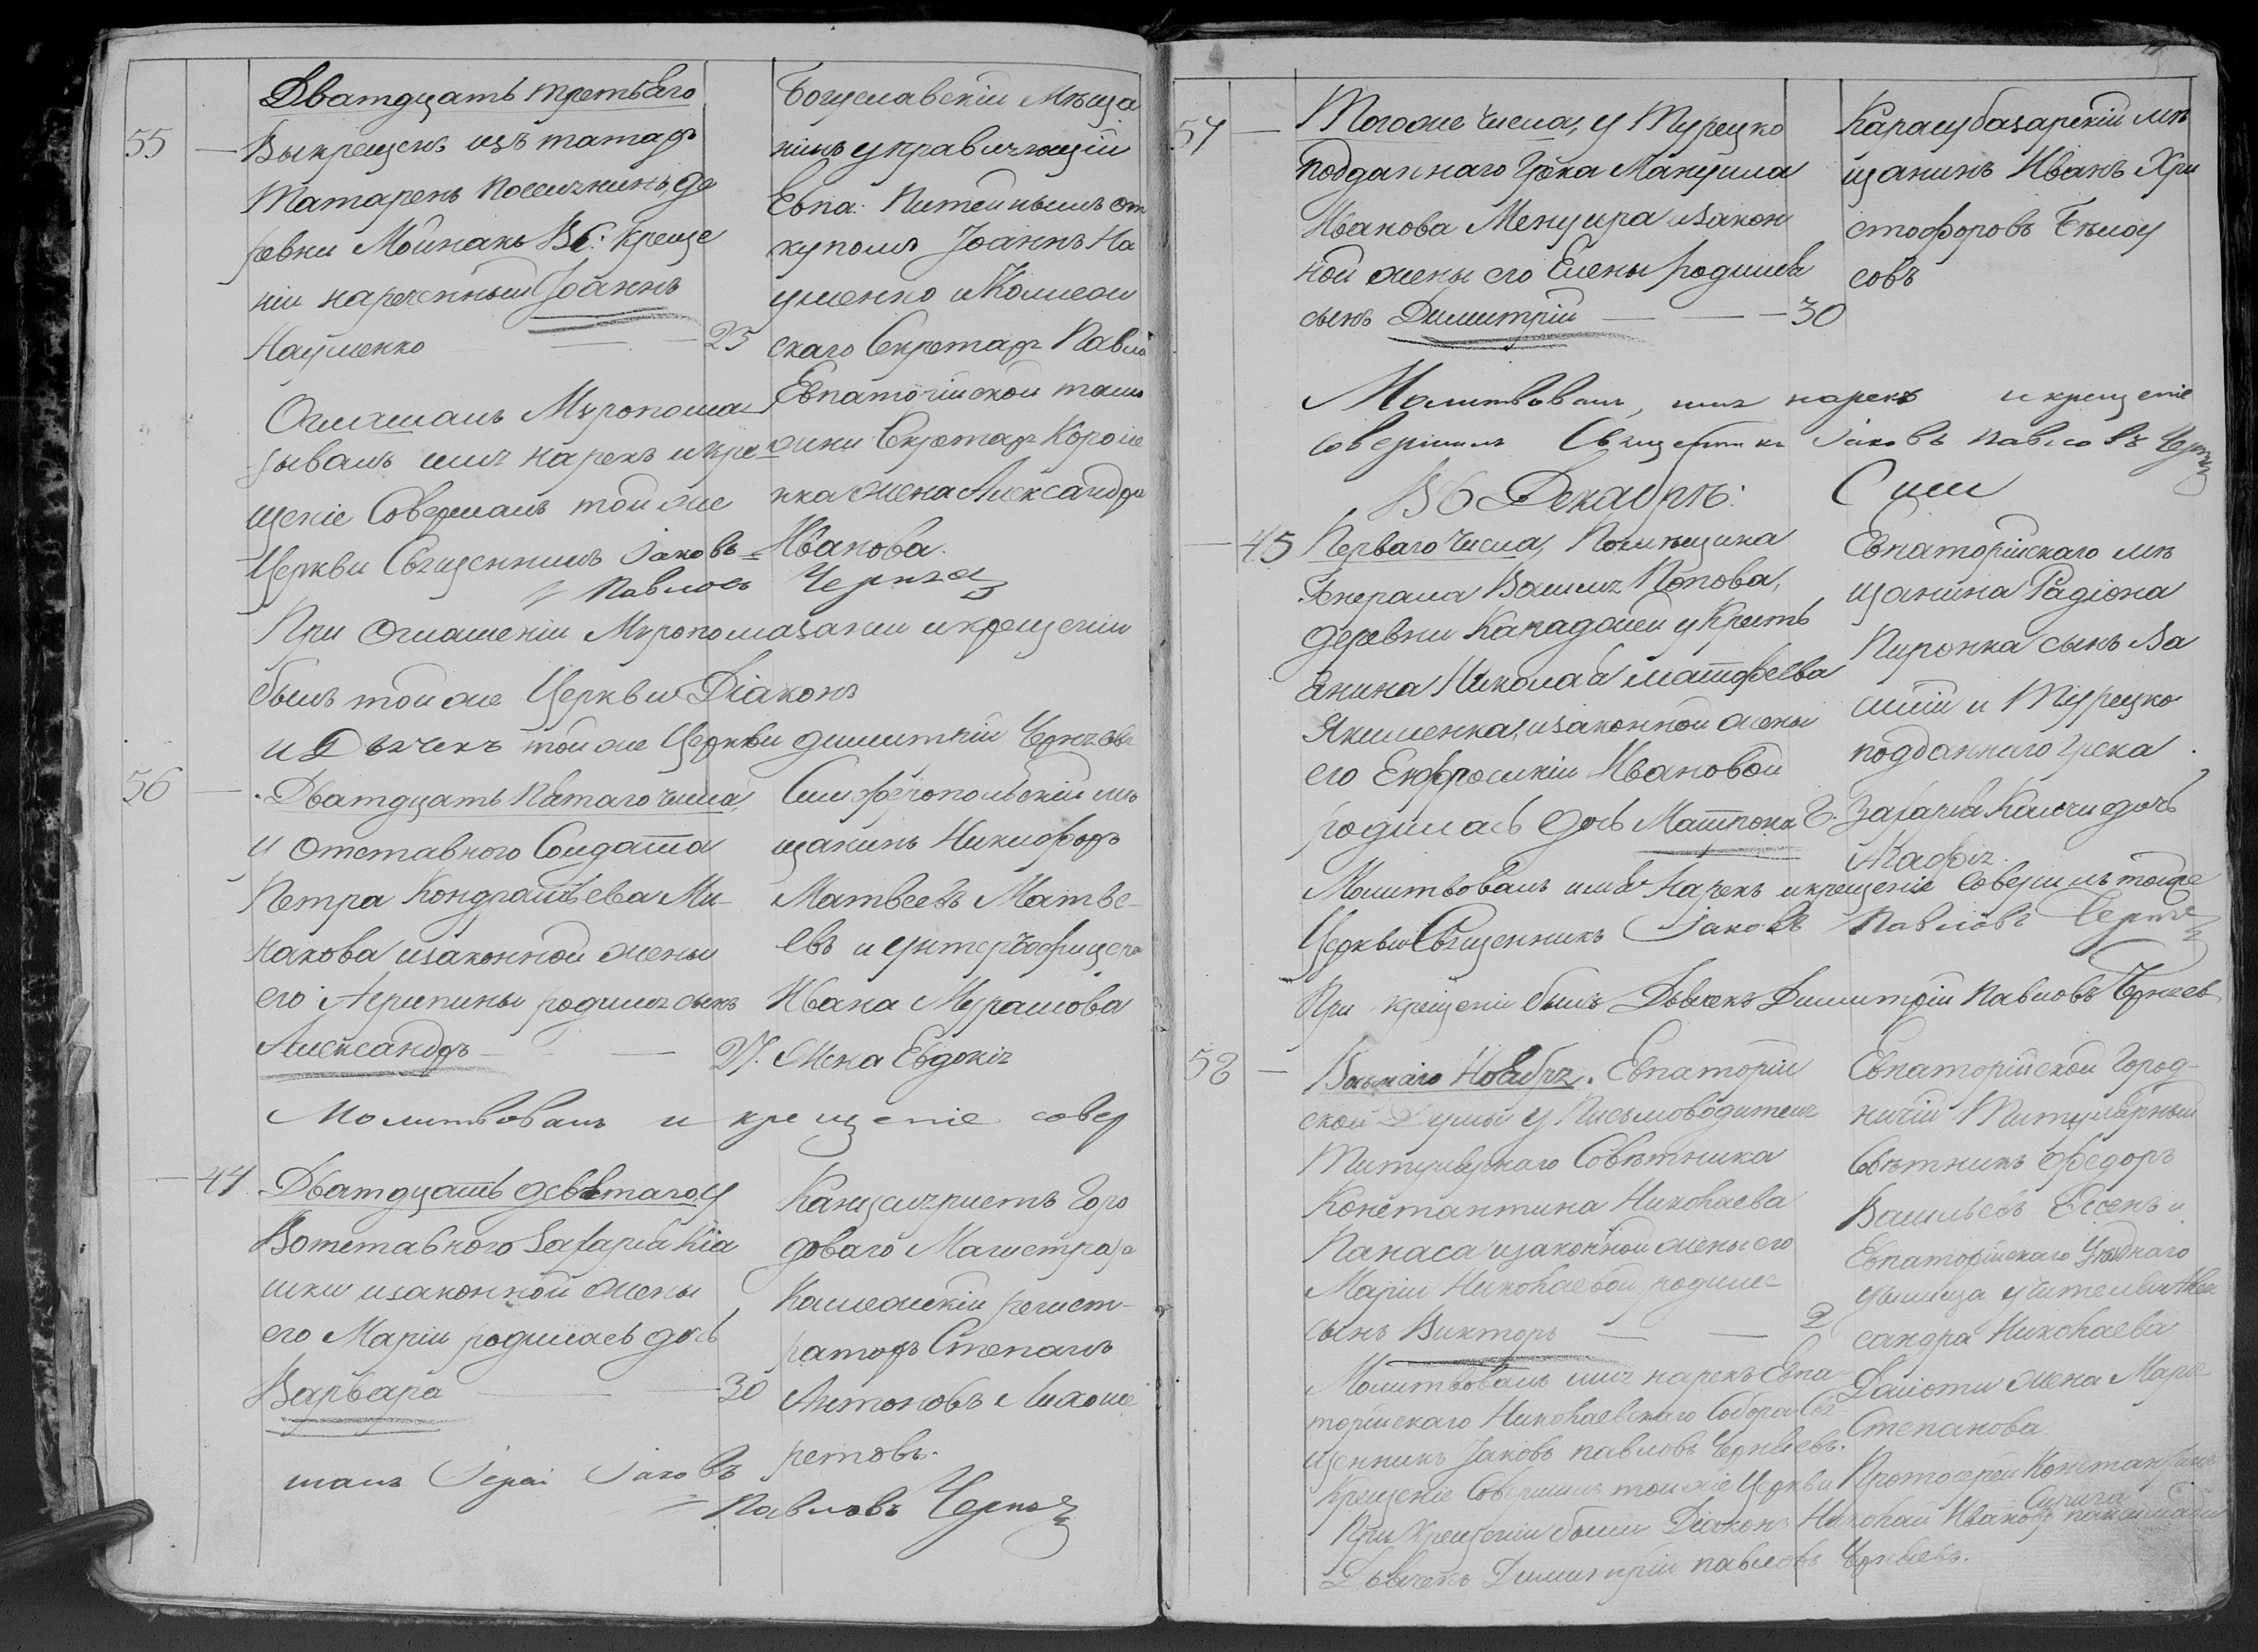 Дватдцать третьяго
55 — Выкрещенъ изъ татаръ
Татаренъ поселянинъ де
ревни Мойнакъ Въ Креще
ніи нареченный Іоаннъ
Науменко — — 25
Оглашалъ Мѵропома
зывалъ имя нарекъ и кре
щеніе Совершалъ той же
Церкви Священникъ Іаковъ
Павловъ Черняев
Богуславскій Мѣща
нинъ управляющій
Евпа: Питейнымъ от
купомъ Іоаннъ На
уменко и Коллеж
скаго Секретаръ Павла
Евпаторійской тамо
жни Секретаръ Короле
нка жена Александра
Иванова.
При Оглашеніи Мѵропомазаніи и крещеніи
былъ той же Церкви Діаконъ
и Дьячекъ той же Церкви Димитрій Черняевъ
56 — Дватдцать Пятаго числа,
у Отставного Солдата
Петра Кондратьева Ми-
накова изаконной жены
его Агрипины родился сынъ
Александръ — — 27.
Симферопольскій мѣ
щанинъ Никифоръ
Матвеевъ Матве-
евъ и унтеръ офицера
Ивана Мурашова
Жена Евдокія
Молитвовалъ и крещеніе совер
— 44 Дватдцать девятаго, у
Вотставного Захарія Кіа
шки изаконной жены
его Маріи родилась дочь
Варвара — — 30
Канцеляристъ Горо
доваго Магистрата
Коллежскій регист-
раторъ Степанъ
Антоновъ Лихоше
рстовъ.
шалъ Іерей Іаковъ
Павловъ Черняев
57 — Тогоже числа, у Турецко
подданнаго Грека Мануила
Иванова Менцира изакон
ной жены его Елены родился
сынъ Димитрій — — 30
Карасубазарскій мѣ
щанинъ Иванъ Хри
стофоровъ Бѣлоу
совъ
Молитвовалъ, имя нарекъ и крещеніе
Совершилъ Священникъ Іаковъ Павловъ Черняев
Въ Декабрѣ: Сим
— 45 Перваго Числа, Помѣщика
Генерала Василія Попова,
деревни Карадожей у Крестья
янина Николая Матфеева
Якименка, изаконной жены
его Ефросиніи Ивановой
родилась дочь Матрона 6.
Евпаторійскаго мѣ
щанина Радіона
Пиронка сынъ Ва
силій и Турецко
подданнаго грека
Захарія Калчи дочь
Агафія.
Молитвовалъ имя Нарекъ и крещеніе Совершилъ тойже
Церкви Священникъ Іаковъ Павловъ Черняев
При крещеніи былъ Дьячекъ Димитрій Павловъ Черняевъ
58 — Ноября. Евпаторій
ской Думы у Письмоводителя
Титулярнаго Совѣтника
Константина Николаева
Панаса изаконной жены его
Маріи Николаевой родился
сынъ Викторъ — — 2
Евпаторійской Город-
ничій Титулярный
Совѣтникъ Федоръ
Васильевъ Ессенъ и
Евпаторійскаго Уѣзднаго
училища учителя Алек
сандра Николаева
Далоти жена Марія
Степанова
Молитвовалъ имя нарекъ Евпа-
торійскаго Николаевскаго Собора Свя
щенникъ Іаковъ павловъ Черняевъ.
Крещеніе Совершилъ той же Церкви Протоіерей Константинъ
Сирига
При Крещеніи были Діаконъ Николай Ивановъ
Дьячекъ Димитрій павловъ Черняевъ.